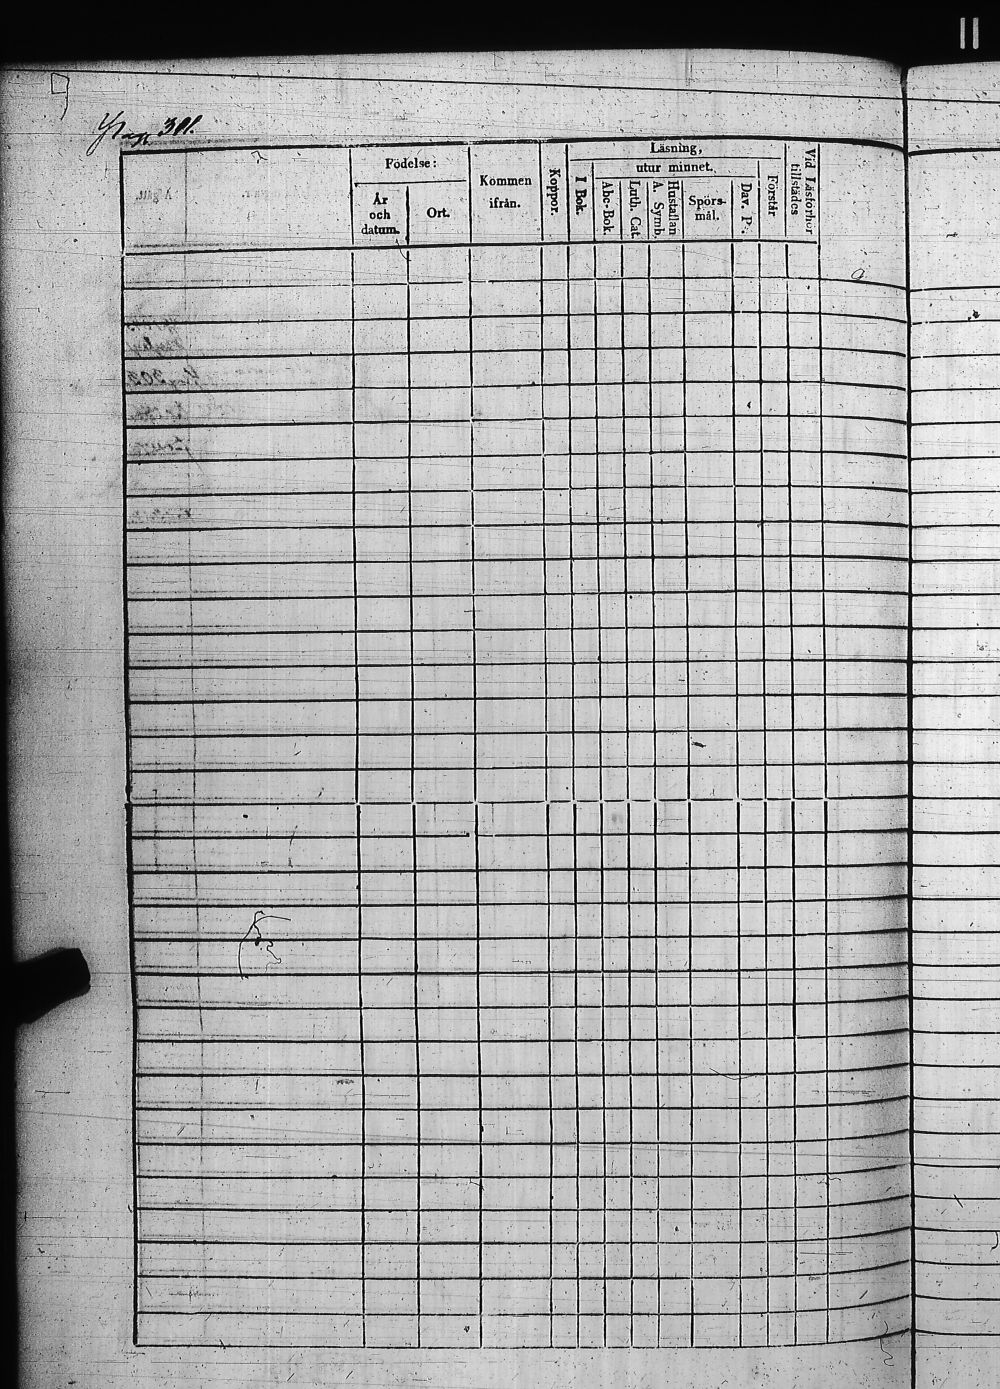 Pag 301.
Födelse:
År
och
datum.
Ort.
Kommen
ifrån.
Koppor.
Läsning,
I Bok.
utur minnet.
Abc-Bok.
Luth. Cat.
A. Symb.
Hustaflan
Spörs-
mål.
Dav. P.
Förstår
Vid Läsförhör
tillstädes